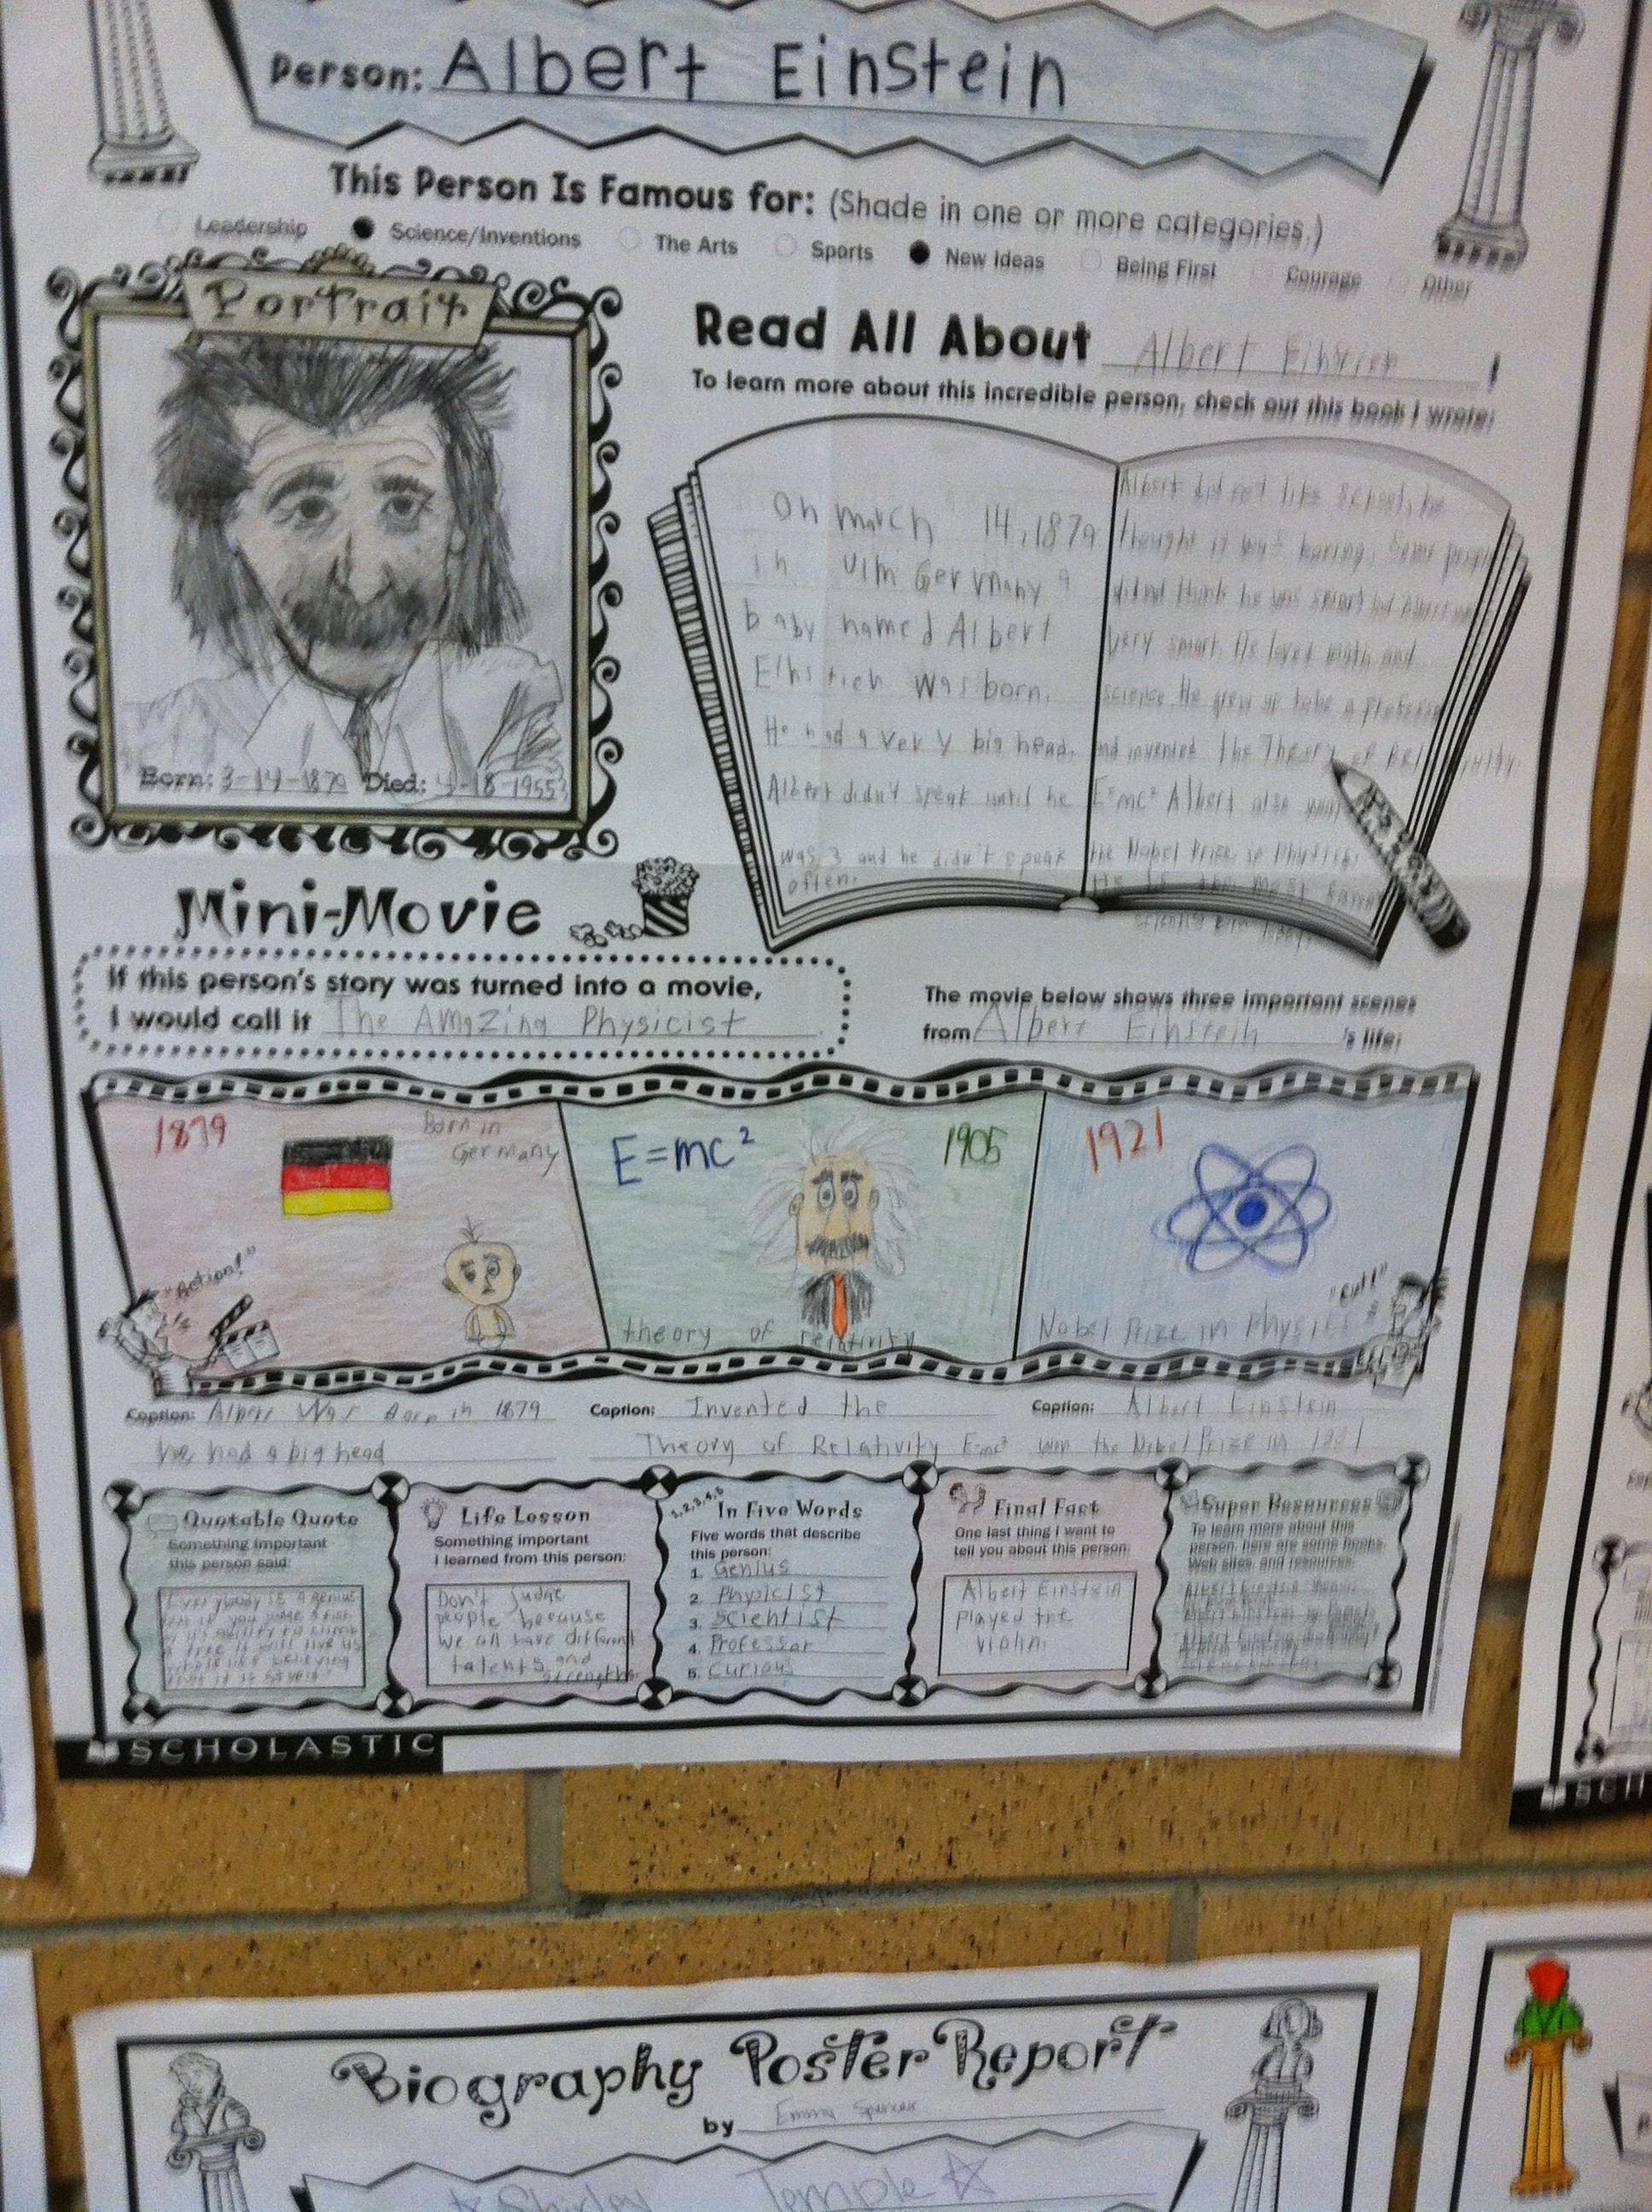 Person: Albert Einstein
This Person Is Famous for: (Shade in one or more categories.)
Leadership Science/Inventions The Arts Sports New Ideas Being First Courage Other
Portrait
Born: 3-14-1879 Died: 4-18-1955
Read All About Albert
!
To learn more about this incredible person, check out this book I wrote:
On march 14, 1879
in Ulm Germany a
baby named Albert
was born.
He had a very big head.
Albert didn't speak until he
was 3 and he didn't speak
often.
Albert did not like School, he
thought it was boring. Some people
did not think he was smart but Albert was
very smart. He loved math and
science. He grew up to be a
and invented the Theory of
E=mc² Albert also won
the Nobel Prize in Physics.
Mini-Movie
If this person's story was turned into a movie,
I would call it The Amazing Physicist.
The movie below shows three important scenes
from Albert Einstein's life:
1879
Born in
Germany
"Action!"
E=mc²
1905
theory of relativity
1921
"Cut!"
Nobel Prize in Physics
Caption: Albert Was Born in 1879
he had a big head
Caption: Invented the
Theory of Relativity E=mc²
Caption: Albert Einstein
won the Nobel Prize in 1921
Quotable Quote
Something important
this person said:
"Everybody is a genius
but if you judge a fish
by its ability to climb
a tree it will live its
whole life believing
Life Lesson
Something important
I learned from this person:
Don't Judge
people because
we all have different
talents and
strengths
1,2,3,4,5
In Five Words
Five words that describe
this person:
1. Genius
2. Physicist
3. Scientist
4. Professor
5. Curious
Final Fact
One last thing I want to
tell you about this person:
Albert Einstein
played the
violin.
Super Resources
To learn more about this
person, here are some books,
Web sites, and resources:
SCHOLASTIC
Biography Poster Report
by Emma
Shirley Temple